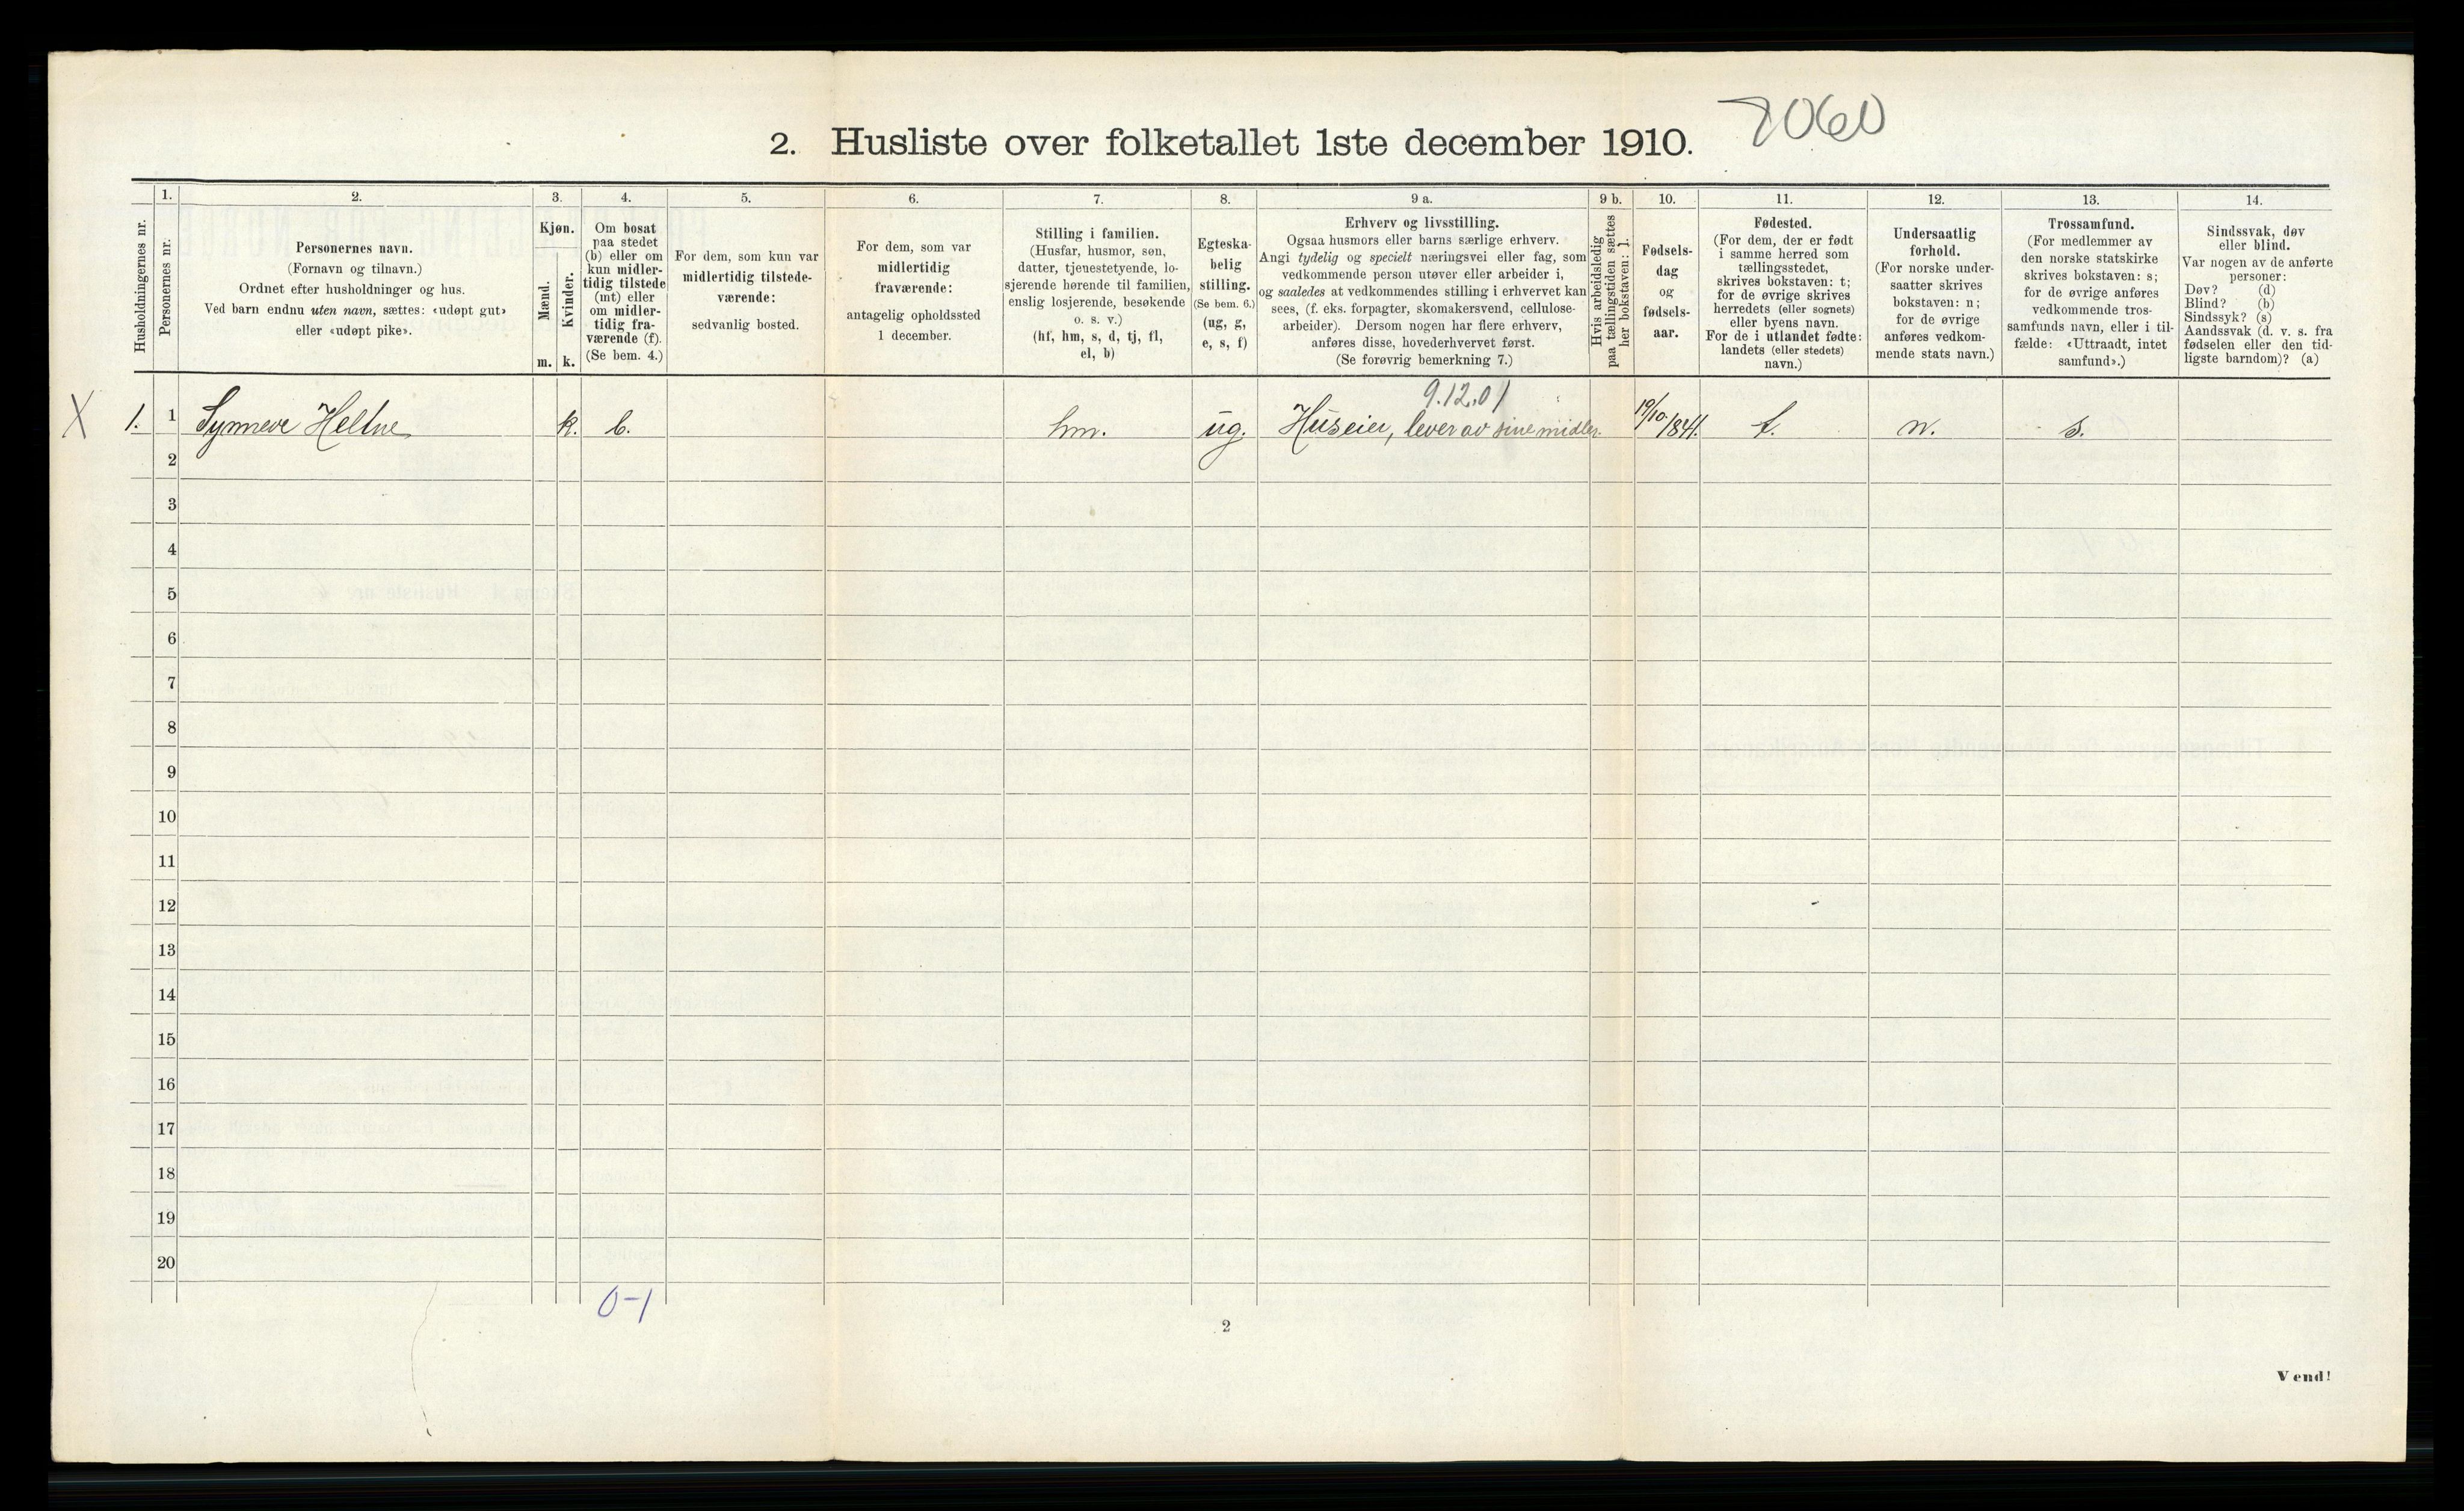 2. Husliste over folketallet 1ste december 1910.
Husholdningernes nr.
1.
Personernes nr.
2.
Personernes navn.
(Fornavn og tilnavn.)
Ordnet efter husholdninger og hus.
Ved barn endnu uten navn, sættes: «udøpt gut»
eller «udøpt pike».
3.
Kjøn.
Mænd.
m.
Kvinder.
k.
4.
Om bosat
paa stedet
(b) eller om
kun midler-
tidig tilstede
(mt) eller
om midler-
tidig fra-
værende (f).
(Se bem. 4.)
5.
For dem, som kun var
midlertidig tilstede-
værende:
sedvanlig bosted.
6.
For dem, som var
midlertidig
fraværende:
antagelig opholdssted
1 december.
7.
Stilling i familien.
(Husfar, husmor, søn,
datter, tjenestetyende, lo-
sjerende hørende til familien,
enslig losjerende, besøkende
o. s. v.)
(hf, hm, s, d, tj, fl,
el, b)
8.
Egteska-
belig
stilling.
(Se bem. 6.)
(ug, g,
e, s, f)
9 a.
Erhverv og livsstilling.
Ogsaa husmors eller barns særlige erhverv.
Angi tydelig og specielt næringsvei eller fag, som
vedkommende person utøver eller arbeider i,
og saaledes at vedkommendes stilling i erhvervet kan
sees, (f. eks. forpagter, skomakersvend, cellulose-
arbeider). Dersom nogen har flere erhverv,
anføres disse, hovederhvervet først.
(Se forøvrig bemerkning 7.)
9 b.
Hvis arbeidsledig
paa tællingstiden sættes
her bokstaven: l.
10.
Fødsels-
dag
og
fødsels-
aar.
11.
Fødested.
(For dem, der er født
i samme herred som
tællingsstedet,
skrives bokstaven: t;
for de øvrige skrives
herredets (eller sognets)
eller byens navn.
For de i utlandet fødte:
landets (eller stedets)
navn.)
12.
Undersaatlig
forhold.
(For norske under-
saatter skrives
bokstaven: n;
for de øvrige
anføres vedkom-
mende stats navn.)
13.
Trossamfund.
(For medlemmer av
den norske statskirke
skrives bokstaven: s;
for de øvrige anføres
vedkommende tros-
samfunds navn, eller i til-
fælde: «Uttraadt, intet
samfund».)
14.
Sindssvak, døv
eller blind.
Var nogen av de anførte
personer:
Døv? (d)
Blind? (b)
Sindssyk? (s)
Aandssvak (d. v. s. fra
fødselen eller den tid-
ligste barndom)? (a)
9.12.01
X 1. 1 Synneve Heltne k. b. hm. ug. Huseier, lever av sine midler. 19/10/1841. t. n. s.
2
3
4
5
6
7
8
9
10
11
12
13
14
15
16
17
18
19
20
0-1
2
Vend!